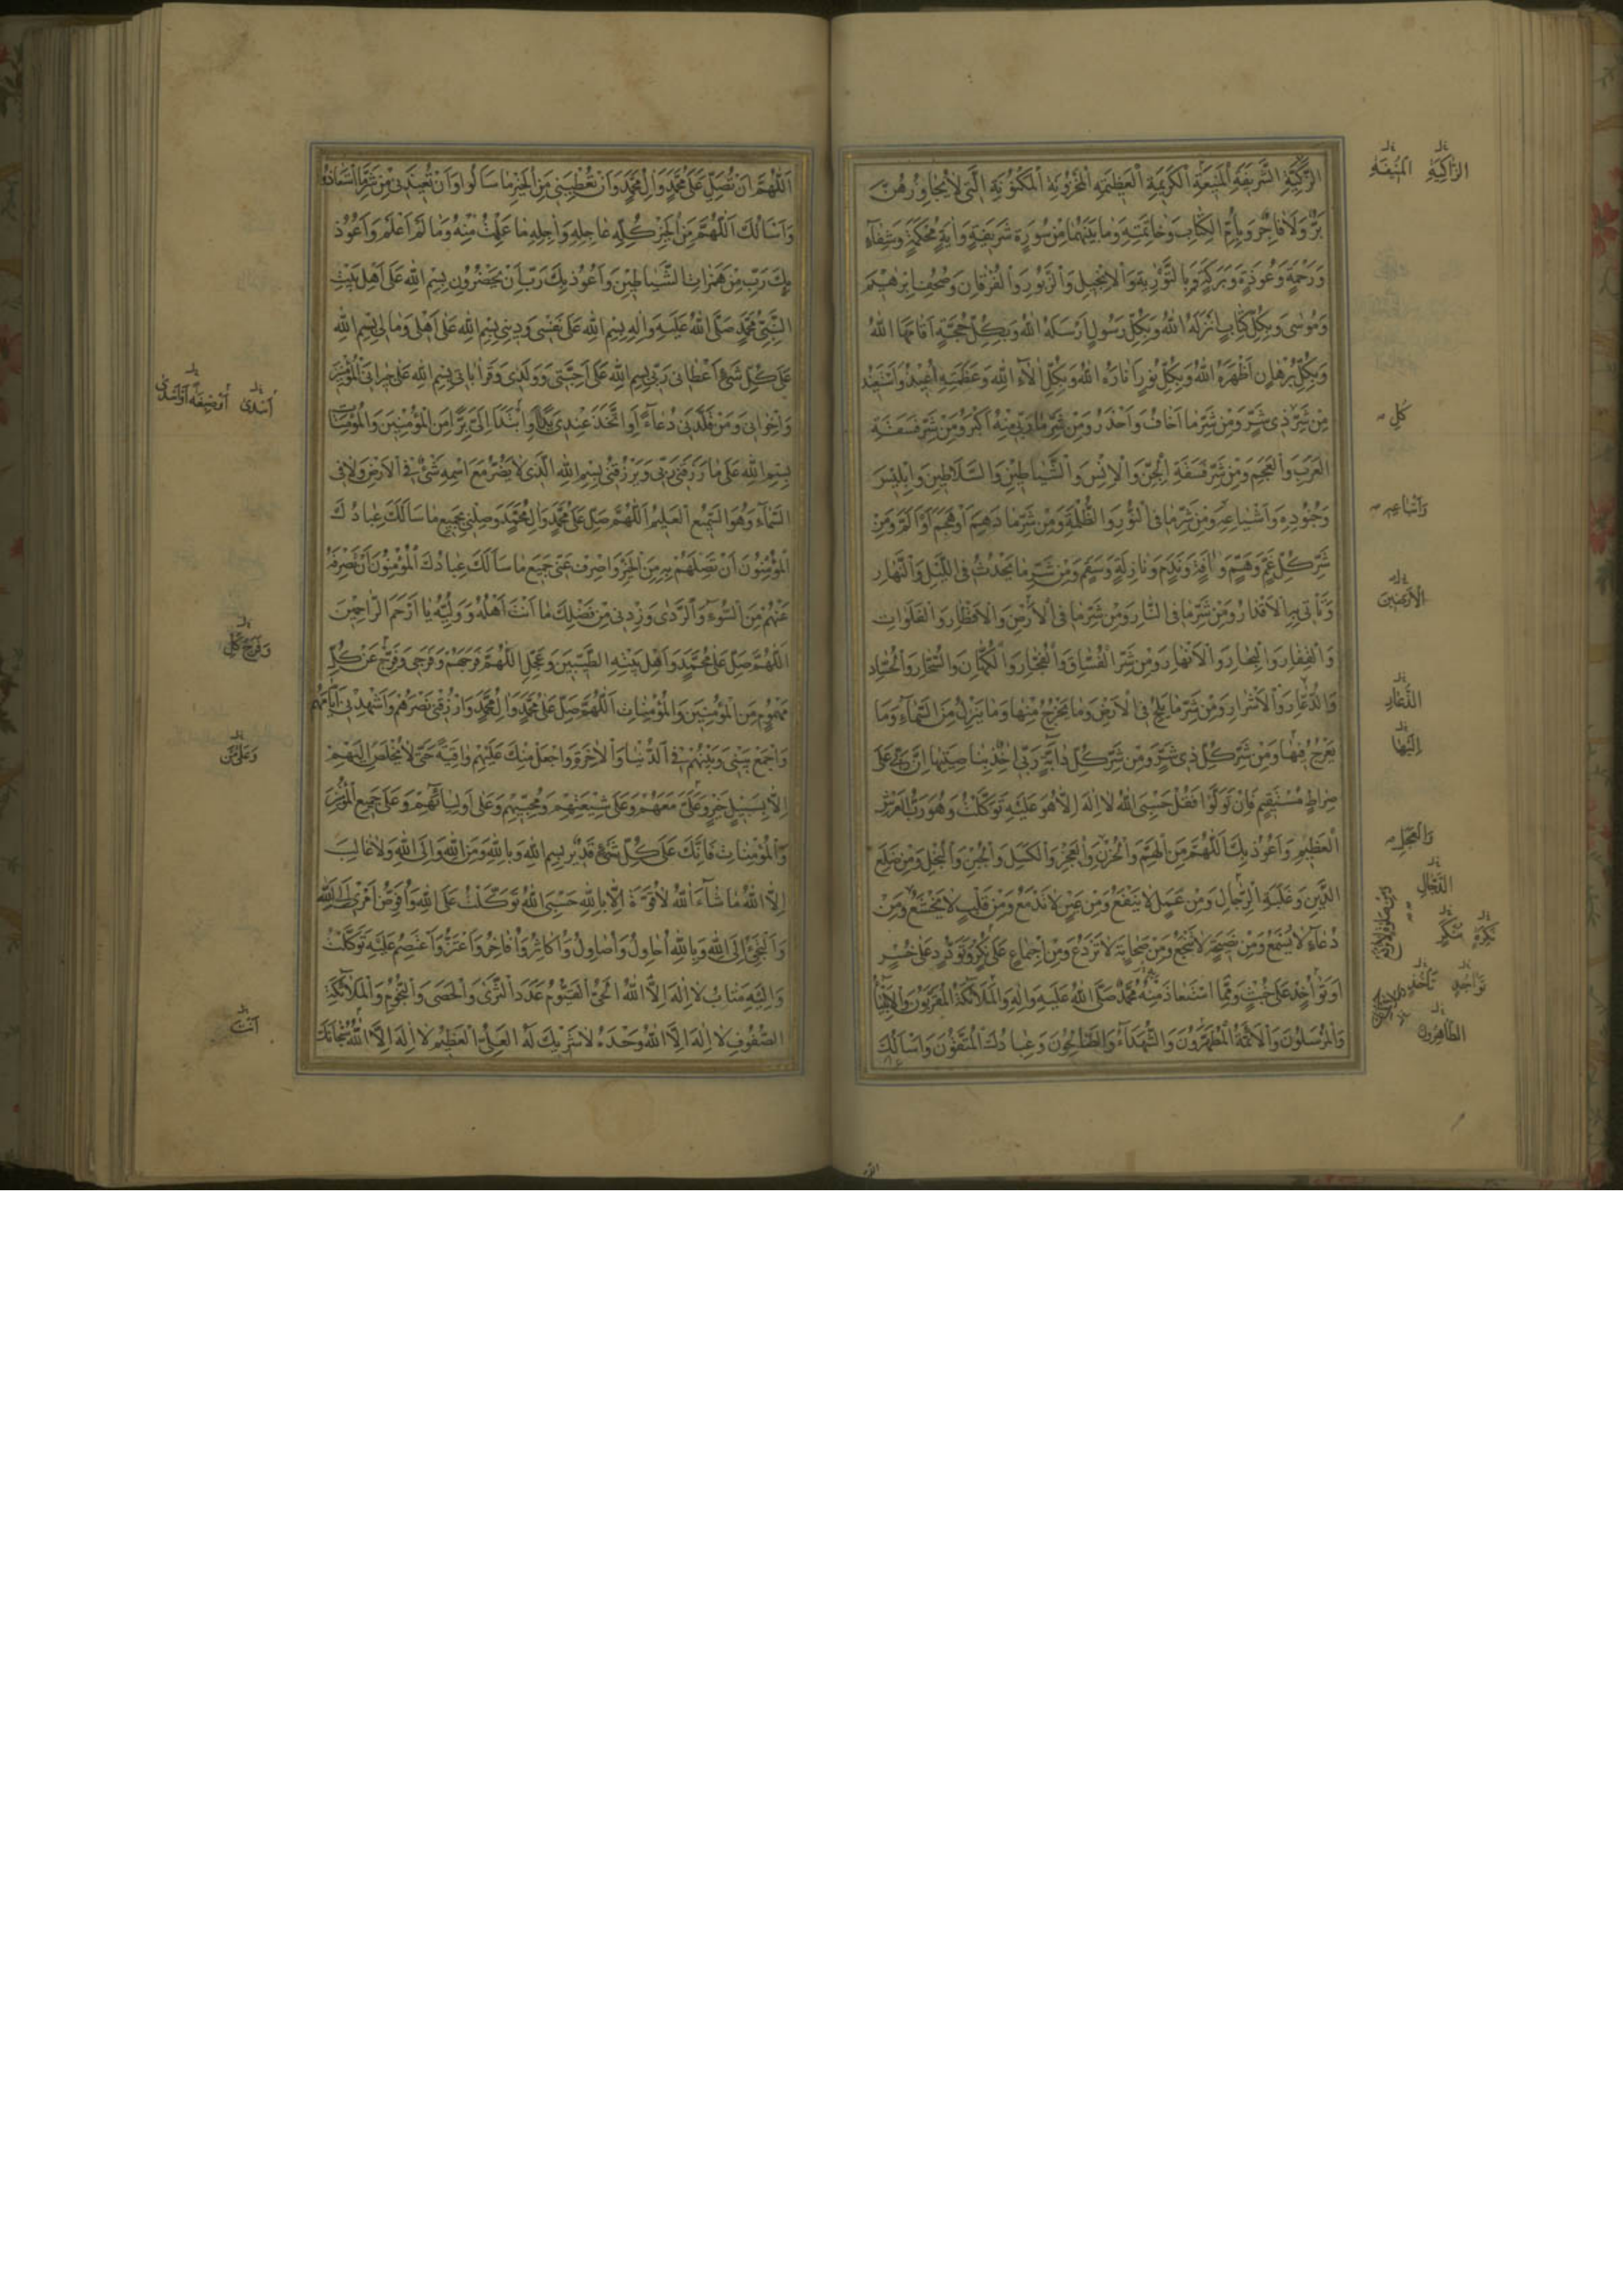 الزَّكِيَّةِ الشَّرِيفَةِ الْمَنِيعَةِ الْكَرِيمَةِ الْعَظِيمَةِ الْمَخْزُونَةِ الْمَكْنُونَةِ الَّتِي لَا يُجَاوِزُهُنَّ
بَرٌّ وَلَا فَاجِرٌ وَبِأُمِّ الْكِتَابِ وَخَاتِمَتِهِ وَمَا بَيْنَهُمَا مِنْ سُورَةٍ شَرِيفَةٍ وَآيَةٍ مُحْكَمَةٍ وَشِفَاءٍ
وَرَحْمَةٍ وَعُوذَةٍ وَبَرَكَةٍ وَبِالتَّوْرٰيةِ وَالْإِنْجِيلِ وَالزَّبُورِ وَالْفُرْقَانِ وَصُحُفِ إِبْرٰهِيمَ
وَمُوسَى وَبِكُلِّ كِتَابٍ أَنْزَلَهُ اللهُ وَبِكُلِّ رَسُولٍ أَرْسَلَهُ اللهُ وَبِكُلِّ حُجَّةٍ أَقَامَهَا اللهُ
وَبِكُلِّ بُرْهَانٍ أَظْهَرَهُ اللهُ وَبِكُلِّ نُورٍ أَنَارَهُ اللهُ وَبِكُلِّ آلَاءِ اللهِ وَعَظَمَتِهِ أُعِيذُ وَأَسْتَعِيذُ
مِنْ شَرِّ ذِي شَرٍّ وَمِنْ شَرِّ مَا أَخَافُ وَأَحْذَرُ وَمِنْ شَرِّ مَا رَبِّي مِنْهُ أَكْبَرُ وَمِنْ شَرِّ فَسَقَةِ
الْعَرَبِ وَالْعَجَمِ وَمِنْ شَرِّ فَسَقَةِ الْجِنِّ وَالْإِنْسِ وَالشَّيَاطِينِ وَالسَّلَاطِينِ وَإِبْلِيسَ
وَجُنُودِهِ وَأَشْيَاعِهِ وَمِنْ شَرِّ مَا فِي النُّورِ وَالظُّلْمَةِ وَمِنْ شَرِّ مَا دَهَمَ أَوْ هَجَمَ أَوْ أَلَمَّ وَمِنْ
شَرِّ كُلِّ غَمٍّ وَهَمٍّ وَآفَةٍ وَنَدَمٍ وَنَازِلَةٍ وَسَقَمٍ وَمِنْ شَرِّ مَا يَحْدُثُ فِي اللَّيْلِ وَالنَّهَارِ
وَتَأْتِي بِهِ الْأَقْدَارُ وَمِنْ شَرِّ مَا فِي النَّارِ وَمِنْ شَرِّ مَا فِي الْأَرْضِ وَالْأَقْطَارِ وَالْفَلَوَاتِ
وَالْقِفَارِ وَالْبِحَارِ وَالْأَنْهَارِ وَمِنْ شَرِّ الْفُسَّاقِ وَالْفُجَّارِ وَالْكُهَّانِ وَالسُّحَّارِ وَالْحُسَّادِ
وَالذُّعَّارِ وَالْأَشْرَارِ وَمِنْ شَرِّ مَا يَلِجُ فِي الْأَرْضِ وَمَا يَخْرُجُ مِنْهَا وَمَا يَنْزِلُ مِنَ السَّمَاءِ وَمَا
يَعْرُجُ فِيهَا وَمِنْ شَرِّ كُلِّ ذِي شَرٍّ وَمِنْ شَرِّ كُلِّ دَابَّةٍ رَبِّي آخِذٌ بِنَاصِيَتِهَا إِنَّ رَبِّي عَلَى
صِرَاطٍ مُسْتَقِيمٍ فَإِنْ تَوَلَّوْا فَقُلْ حَسْبِيَ اللهُ لَا إِلَهَ إِلَّا هُوَ عَلَيْهِ تَوَكَّلْتُ وَهُوَ رَبُّ الْعَرْشِ
الْعَظِيمِ وَأَعُوذُ بِكَ اللّٰهُمَّ مِنَ الْهَمِّ وَالْحُزْنِ وَالْعَجْزِ وَالْكَسَلِ وَالْجُبْنِ وَالْبُخْلِ وَمِنْ ضَلَعِ
الدَّيْنِ وَغَلَبَةِ الرِّجَالِ وَمِنْ عَمَلٍ لَا يَنْفَعُ وَمِنْ عَيْنٍ لَا تَدْمَعُ وَمِنْ قَلْبٍ لَا يَخْشَعُ وَمِنْ
دُعَاءٍ لَا يُسْمَعُ وَمِنْ نَصِيحَةٍ لَا تَنْجَعُ وَمِنْ صَحَابَةٍ لَا تَرْدَعُ وَمِنْ إِجْمَاعٍ عَلَى نُكْرٍ وَتَوَدُّدٍ عَلَى خُسْرٍ
أَوْ تَوَاخُذٍ عَلَى خُبْثٍ وَمِمَّا اسْتَعَاذَ مِنْهُ مُحَمَّدٌ صَلَّى اللهُ عَلَيْهِ وَآلِهِ وَالْمَلَائِكَةُ الْمُقَرَّبُونَ وَالْأَنْبِيَاءُ
وَالْمُرْسَلُونَ وَالْأَئِمَّةُ الْمُطَهَّرُونَ وَالشُّهَدَاءُ وَالصَّالِحُونَ وَعِبَادُكَ الْمُتَّقُونَ وَأَسْأَلُكَ
الزَّاكِيَةِ الْمُنِيفَةِ
كُلِّ
وَأَتْبَاعِهِ
الْأَرَضِينَ
الدُّعَّارِ
إِلَيْهَا
الدَّجَّالِ
نُكْرَةٍ مُنْكَرٍ
تَوَاجُدٍ تَآخُذٍ
الطَّاهِرُونَ
اللّٰهُمَّ أَنْ تُصَلِّيَ عَلَى مُحَمَّدٍ وَآلِ مُحَمَّدٍ وَأَنْ تُعْطِيَنِي مِنَ الْخَيْرِ مَا سَأَلُوا وَأَنْ تُعِيذَنِي مِنْ شَرِّ مَا اسْتَعَاذُوا
وَأَسْأَلُكَ اللّٰهُمَّ مِنَ الْخَيْرِ كُلِّهِ عَاجِلِهِ وَآجِلِهِ مَا عَلِمْتُ مِنْهُ وَمَا لَمْ أَعْلَمْ وَأَعُوذُ
بِكَ رَبِّ مِنْ هَمَزَاتِ الشَّيَاطِينِ وَأَعُوذُ بِكَ رَبِّ أَنْ يَحْضُرُونِ بِسْمِ اللهِ عَلَى أَهْلِ بَيْتِ
النَّبِيِّ مُحَمَّدٍ صَلَّى اللهُ عَلَيْهِ وَآلِهِ بِسْمِ اللهِ عَلَى نَفْسِي وَدِينِي بِسْمِ اللهِ عَلَى أَهْلِي وَمَالِي بِسْمِ اللهِ
عَلَى كُلِّ شَيْءٍ أَعْطَانِي رَبِّي بِسْمِ اللهِ عَلَى أَحِبَّتِي وَوَلَدِي وَقَرَابَاتِي بِسْمِ اللهِ عَلَى جِيرَانِي الْمُؤْمِنِينَ
وَإِخْوَانِي وَمَنْ قَلَّدَنِي دُعَاءً أَوِ اتَّخَذَ عِنْدِي يَدًا أَوِ ابْتَدَأَ إِلَيَّ بِرًّا مِنَ الْمُؤْمِنِينَ وَالْمُؤْمِنَاتِ
بِسْمِ اللهِ عَلَى مَا رَزَقَنِي رَبِّي وَيَرْزُقُنِي بِسْمِ اللهِ الَّذِي لَا يَضُرُّ مَعَ اسْمِهِ شَيْءٌ فِي الْأَرْضِ وَلَا فِي
السَّمَاءِ وَهُوَ السَّمِيعُ الْعَلِيمُ اللّٰهُمَّ صَلِّ عَلَى مُحَمَّدٍ وَآلِ مُحَمَّدٍ وَصِلْنِي بِجَمِيعِ مَا سَأَلَكَ عِبَادُكَ
الْمُؤْمِنُونَ أَنْ تَصِلَهُمْ بِهِ مِنَ الْخَيْرِ وَاصْرِفْ عَنِّي جَمِيعَ مَا سَأَلَكَ عِبَادُكَ الْمُؤْمِنُونَ أَنْ تَصْرِفَهُ
عَنْهُمْ مِنَ السُّوءِ وَالرَّدَى وَزِدْنِي مِنْ فَضْلِكَ مَا أَنْتَ أَهْلُهُ وَوَلِيُّهُ يَا أَرْحَمَ الرَّاحِمِينَ
اللّٰهُمَّ صَلِّ عَلَى مُحَمَّدٍ وَأَهْلِ بَيْتِهِ الطَّيِّبِينَ وَعَجِّلِ اللّٰهُمَّ فَرَجَهُمْ وَفَرَجِي وَفَرِّجْ عَنْ كُلِّ
مَهْمُومٍ مِنَ الْمُؤْمِنِينَ وَالْمُؤْمِنَاتِ اللّٰهُمَّ صَلِّ عَلَى مُحَمَّدٍ وَآلِ مُحَمَّدٍ وَارْزُقْنِي نَصْرَهُمْ وَأَشْهِدْنِي أَيَّامَهُمْ
وَاجْمَعْ بَيْنِي وَبَيْنَهُمْ فِي الدُّنْيَا وَالْآخِرَةِ وَاجْعَلْ مِنْكَ عَلَيْهِمْ وَاقِيَةً حَتَّى لَا يُخْلَصَ إِلَيْهِمْ
إِلَّا بِسَبِيلِ خَيْرٍ وَعَلَيَّ مَعَهُمْ وَعَلَى شِيعَتِهِمْ وَمُحِبِّيهِمْ وَعَلَى أَوْلِيَائِهِمْ وَعَلَى جَمِيعِ الْمُؤْمِنِينَ
وَالْمُؤْمِنَاتِ فَإِنَّكَ عَلَى كُلِّ شَيْءٍ قَدِيرٌ بِسْمِ اللهِ وَبِاللهِ وَمِنَ اللهِ وَإِلَى اللهِ وَلَا غَالِبَ
إِلَّا اللهُ مَا شَاءَ اللهُ لَا قُوَّةَ إِلَّا بِاللهِ حَسْبِيَ اللهُ تَوَكَّلْتُ عَلَى اللهِ وَأُفَوِّضُ أَمْرِي إِلَى اللهِ
وَأَلْتَجِئُ إِلَى اللهِ وَبِاللهِ أُحَاوِلُ وَأُصَاوِلُ وَأُكَاثِرُ وَأُفَاخِرُ وَأَعْتَزُّ وَأَعْتَصِمُ عَلَيْهِ تَوَكَّلْتُ
وَإِلَيْهِ مَتَابِ لَا إِلَهَ إِلَّا اللهُ الْحَيُّ الْقَيُّومُ عَدَدَ الثَّرَى وَالْحَصَى وَالنُّجُومِ وَالْمَلَائِكَةِ
الصُّفُوفِ لَا إِلَهَ إِلَّا اللهُ وَحْدَهُ لَا شَرِيكَ لَهُ الْعَلِيُّ الْعَظِيمُ لَا إِلَهَ إِلَّا اللهُ سُبْحَانَكَ
أَسْدَى
وَفَرَجَ كُلِّ
أَنْتَ